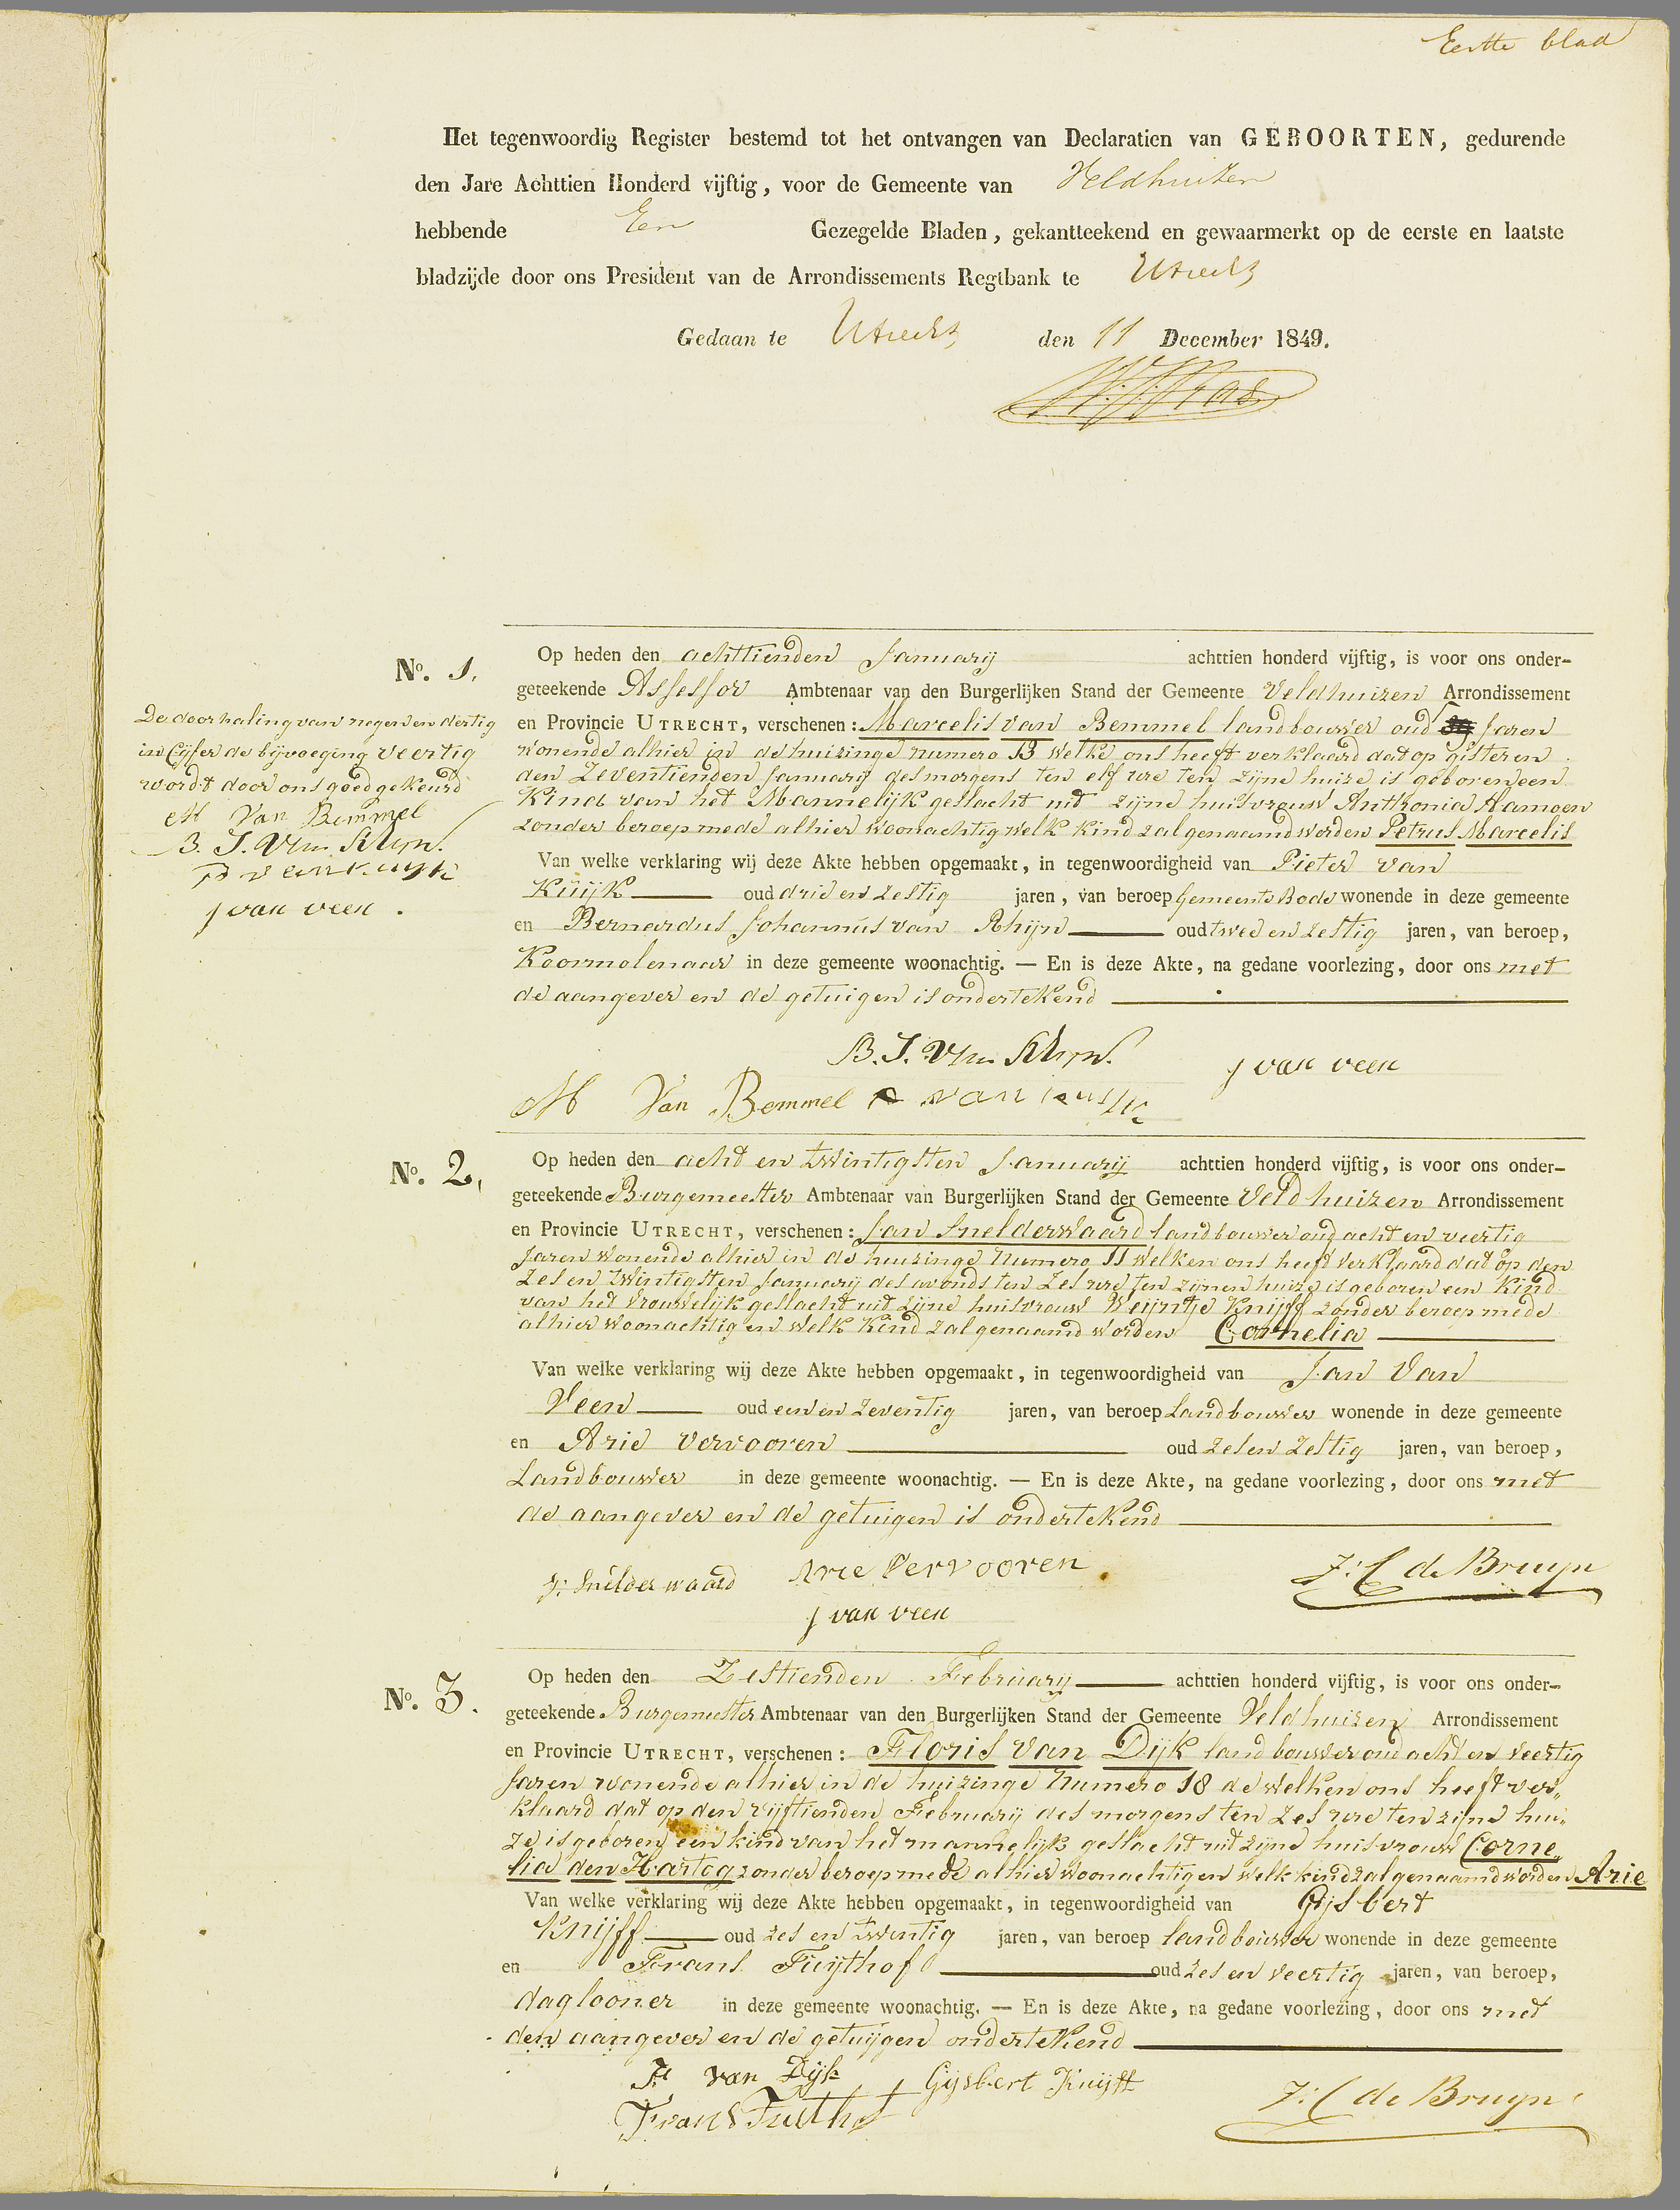 Eerste blad
Het tegenwoordig Register bestemd tot het ontvangen van Declaratien van GEBOORTEN, gedurende
den Jare Achttien Honderd vijftig, voor de Gemeente van Veldhuizen
hebbende Een Gezegelde Bladen, gekantteekend en gewaarmerkt op de eerste en laatste
bladzijde door ons President van de Arrondissements Regtbank te Utrecht
Gedaan te Utrecht den 11 December 1849.
No. 1.
De doorhaling van negen en dertig
in Cijfer de bijvoeging veertig
wordt door ons goedgekeurd
M Van Bemmel
B. J. Van Rhijn.
P van kuijk
J van veen.
Op heden den achttienden Januarij achttien honderd vijftig, is voor ons onder-
geteekende Assessor Ambtenaar van den Burgerlijken Stand der Gemeente Veldhuizen Arrondissement
en Provincie UTRECHT, verschenen: Marcelis van Bemmel landbouwer oud 39 Jaren
wonende alhier in de huizinge numero 13 welke ons heeft verklaard dat op gisteren
den Zeventienden Januarij des morgens ten elf ure ten zijne huize is geboren een
Kind van het Mannelijk geslacht uit zijne huisvrouw Anthonia Hamoen
zonder beroep mede alhier woonachtig welk Kind zal genaamd worden Petrus Marcelis
Van welke verklaring wij deze Akte hebben opgemaakt, in tegenwoordigheid van Pieter van
Kuijk oud drie en zestig jaren, van beroep Gemeente Bode wonende in deze gemeente
en Bernardus Johannus van Rhijn oud twee en zestig jaren, van beroep,
Koornmolenaar in deze gemeente woonachtig. — En is deze Akte, na gedane voorlezing, door ons met
de aangever en de getuigen is ondertekend
B. J. Van Rhijn. J van veen
M Van Bemmel P van kuijk
No. 2,
Op heden den acht en twintigsten Januarij achttien honderd vijftig, is voor ons onder-
geteekende Burgemeester Ambtenaar van Burgerlijken Stand der Gemeente Veldhuizen Arrondissement
en Provincie UTRECHT, verschenen: Jan Snelderwaard landbouwer oud acht en veertig
Jaren wonende alhier in de huizinge Numero 11 welken ons heeft verklaard dat op den
Zes en twintigsten Januarij des avonds ten Zes ure ten zijnen huize is geboren een Kind
van het vrouwelijk geslacht uit zijne huisvrouw Weijntje Knijff zonder beroep mede
alhier woonachtig en welk Kind zal genaamd worden Cornelia
Van welke verklaring wij deze Akte hebben opgemaakt, in tegenwoordigheid van Jan Van
Veen oud een en zeventig jaren, van beroep Landbouwer wonende in deze gemeente
en Arie Vervooren oud zes en zestig jaren, van beroep,
Landbouwer in deze gemeente woonachtig. — En is deze Akte, na gedane voorlezing, door ons met
de aangever en de getuigen is ondertekend
J: Snelderwaard Arie Vervooren J: C de Bruyn
J van veen
No. 3.
Op heden den Zestienden Februarij achttien honderd vijftig, is voor ons onder-
geteekende Burgemeester Ambtenaar van den Burgerlijken Stand der Gemeente Veldhuizen Arrondissement
en Provincie UTRECHT, verschenen: Floris van Dijk landbouwer oud acht en veertig
Jaren wonende alhier in de huizinge Numero 18 de welken ons heeft ver„
klaard dat op den vijftienden Februarij des morgens ten zes ure ten zijne hui„
ze is geboren een kind van het mannelijk geslacht uit zijne huisvrouw Corne„
lia den Hartog zonder beroep mede alhier woonachtig en welk kind zal genaamd worden Arie
Van welke verklaring wij deze Akte hebben opgemaakt, in tegenwoordigheid van Gijsbert
Knijff oud zes en twintig jaren, van beroep landbouwer wonende in deze gemeente
en Frans Fuijthof oud zes en veertig jaren, van beroep,
daglooner in deze gemeente woonachtig. — En is deze Akte, na gedane voorlezing, door ons met
den aangever en de getuijgen ondertekend
F van Dijk Gijsbert Knijff J: C de Bruyn
Frans Fuithof